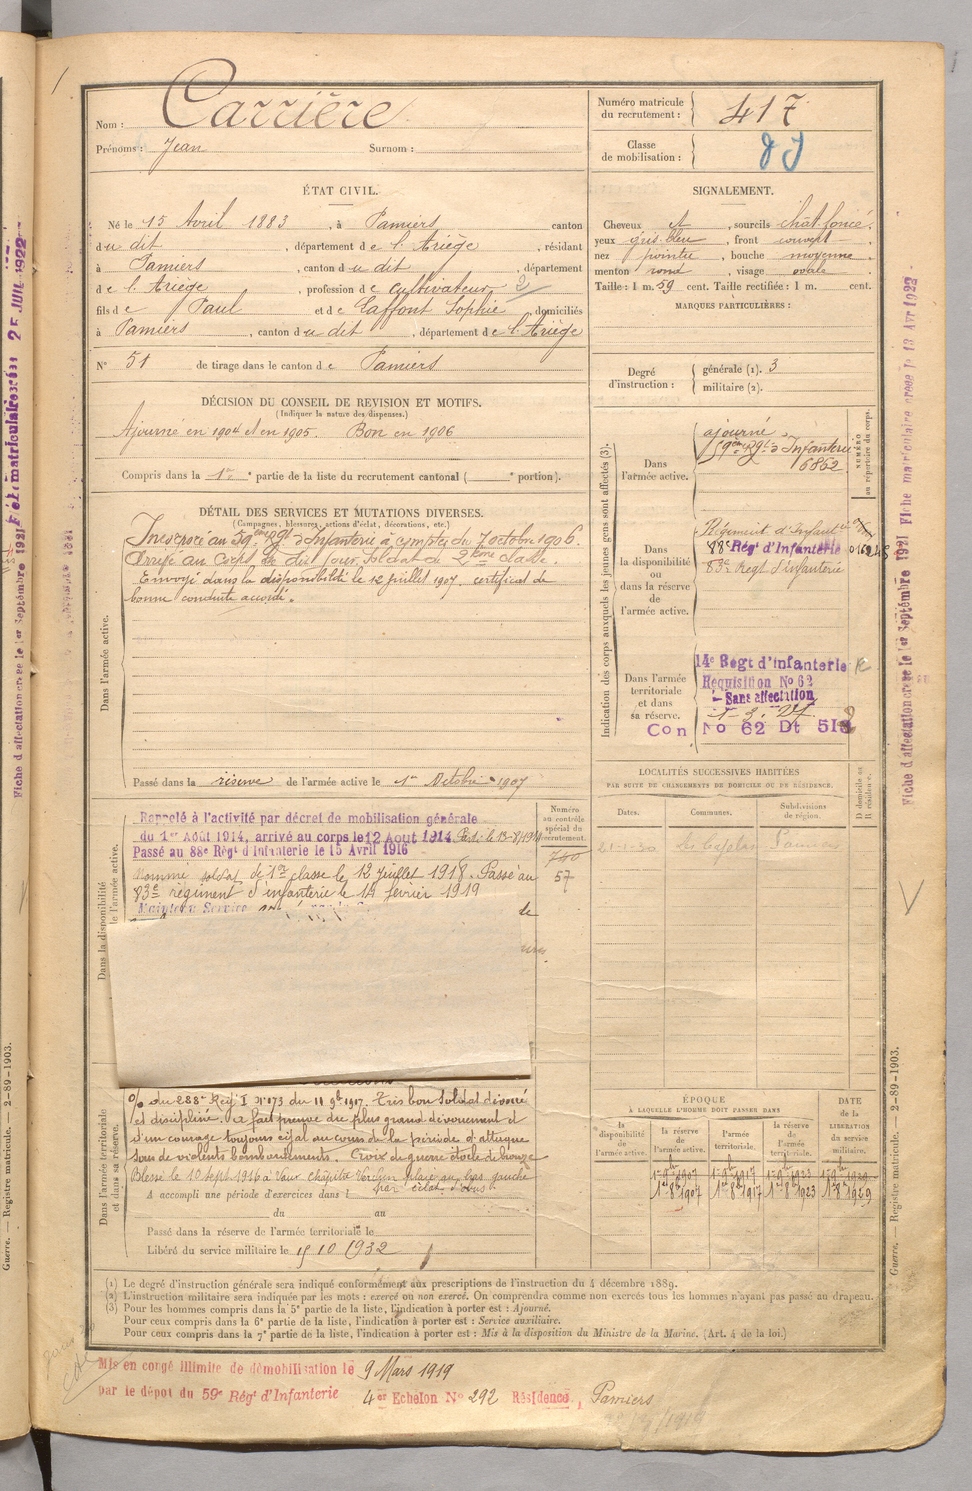 Nom : Carrière
Prénoms : Jean Surnom :
Numéro matricule du recrutement : 417
Classe de mobilisation :
ÉTAT CIVIL.
Né le 15 Avril 1883, à Pamiers canton
du dit, département de l'Ariège, résidant
à Pamiers, canton du dit, département
de l'Ariège, profession de cultivateur 2
fils de Paul et de Laffont Sophie domiciliés
à Pamiers, canton du dit, département de l'Ariège
N° 51 de tirage dans le canton de Pamiers
SIGNALEMENT.
Cheveux et, sourcils chât. foncé.
yeux gris-bleu, front couvert
nez pointu, bouche moyenne
menton rond, visage ovale
Taille : 1 m. 59 cent. Taille rectifiée : 1 m. cent.
MARQUES PARTICULIÈRES :
Degré d'instruction : générale (1). 3
militaire (2).
DÉCISION DU CONSEIL DE REVISION ET MOTIFS.
(Indiquer la nature des dispenses.)
Ajourné en 1904 et en 1905. Bon en 1906
Compris dans la 1re partie de la liste du recrutement cantonal ( e portion).
DÉTAIL DES SERVICES ET MUTATIONS DIVERSES.
(Campagnes, blessures, actions d'éclat, décorations, etc.)
Dans l'armée active.
Incorporé au 59ème Régt d'Infanterie à compter du 7 octobre 1906.
Arrivé au Corps le dit jour Soldat de 2ème classe.
Envoyé dans la disponibilité le 12 juillet 1907, certificat de
bonne conduite accordé.
Passé dans la réserve de l'armée active le 1er Octobre 1907
Indication des corps auxquels les jeunes gens sont affectés (3).
NUMÉRO au répertoire du corps.
Dans l'armée active.
ajourné
59ème Rgt d'Infanterie
6862
Dans la disponibilité ou dans la réserve de l'armée active.
Régiment d'Infanterie
88e Rég' d'Infanterie
83e Regt d'infanterie
Dans l'armée territoriale et dans sa réserve.
14e Régt d'infanterie
Requisition No 62
- Sans affectation
Con No 62 Dt
LOCALITÉS SUCCESSIVES HABITÉES
PAR SUITE DE CHANGEMENTS DE DOMICILE OU DE RÉSIDENCE.
Dates. Communes. Subdivisions de région. D domicile ou R résidence.
Pamiers
Dans la disponibilité
le l'armée active.
Numéro au contrôle spécial du recrutement.
740
57
Rappelé à l'activité par décret de mobilisation générale
du 1er Août 1914, arrivé au corps le 12 Aout 1914.
Passé au 88e Régt d'Infanterie le 15 Avril 1916
Nommé soldat de 1re classe le 12 juillet 1918. Passé au
83e régiment d'infanterie le 14 février 1919
Maintenu Service
de
Dans l'armée territoriale et dans sa réserve.
o/o du 288e Régt I N°173 du 11 9bre 1917. Très bon soldat dévoué
et discipliné. A fait preuve du plus grand dévouement et
d'un courage toujours égal au cours de la période d'attaque
sous de violents bombardements. Croix de guerre étoile de bronze
Blessé le 10 sept. 1916 à Vaux chapitre Verdun plaie au bras gauche
par éclat d'obus
A accompli une période d'exercices dans l
du au
Passé dans la réserve de l'armée territoriale le
Libéré du service militaire le 15 10 1932
ÉPOQUE
À LAQUELLE L'HOMME DOIT PASSER DANS
DATE de la LIBÉRATION du service militaire.
la disponibilité de l'armée active. la réserve de l'armée active. l'armée territoriale. la réserve de l'armée territoriale.
1er 8bre 1907 1er 8bre 1917 1er 8bre 1923 1er 8bre 1929
(1) Le degré d'instruction générale sera indiqué conformément aux prescriptions de l'instruction du 4 décembre 1889.
(2) L'instruction militaire sera indiquée par les mots : exercé ou non exercé. On comprendra comme non exercés tous les hommes n'ayant pas passé au drapeau.
(3) Pour les hommes compris dans la 5e partie de la liste, l'indication à porter est : Ajourné.
Pour ceux compris dans la 6e partie de la liste, l'indication à porter est : Service auxiliaire.
Pour ceux compris dans la 7e partie de la liste, l'indication à porter est : Mis à la disposition du Ministre de la Marine. (Art. 4 de la loi.)
Mis en congé illimité de démobilisation le 9 Mars 1919
par le dépôt du 59e Rég' d'Infanterie 4e Echelon No 292 Résidence, Pamiers
Guerre. — Registre matricule. — 2-89-1903.
Guerre. — Registre matricule. — 2-89-1903.
Fiche d'affectation créée le 1er Septembre 1921 Fiche matriculaire créée le 13 Avr 1922
Fiche d'affectation créée le 1er Septembre 1921 25 JUIL 1922